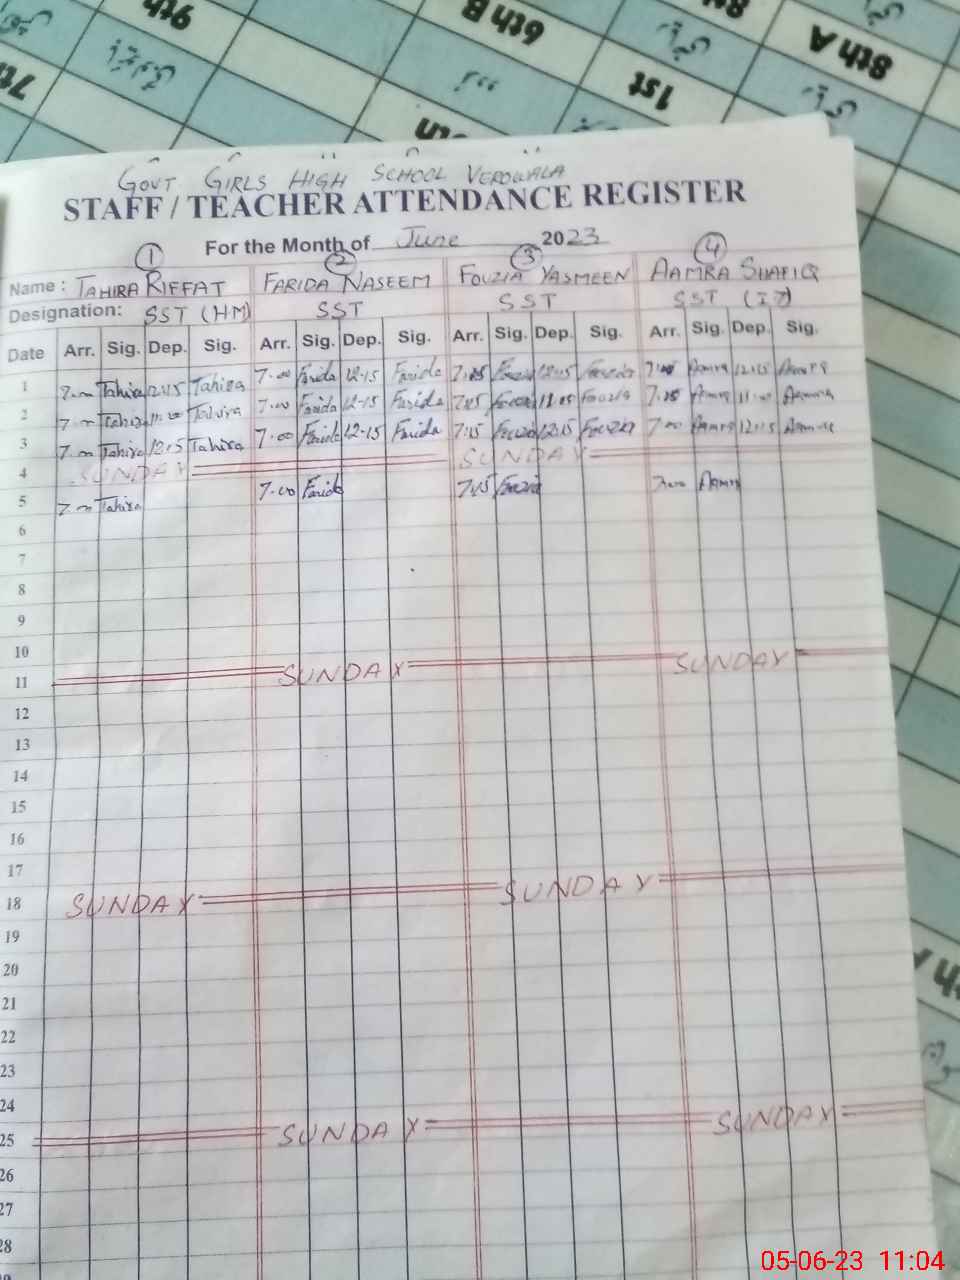 9th
6th B
8th
8th A
7th
1st
GOVT GIRLS HIGH SCHOOL VEROWALA
STAFF / TEACHER ATTENDANCE REGISTER
For the Month of June 2023
1 2 3 4
Name : TAHIRA RIFFAT FARIDA NASEEM FOUZIA YASMEEN AAMRA SHAFIQ
Designation: SST (HM) SST SST SST (IT)
Date Arr. Sig. Dep. Sig. Arr. Sig. Dep. Sig. Arr. Sig. Dep. Sig. Arr. Sig. Dep. Sig.
1 Tahira 12:15 Tahira 7-00 Farida 12-15 Farida Fouzia 12:15 Fouzia Aamra 12:15 Aamra
2 Tahira 11:00 Tahira 7-00 Farida 12-15 Farida 7:15 Fouzia Fouzia Aamra Aamra
3 Tahira 12:15 Tahira 7-00 Farida 12-15 Farida 7:15 Fouzia 12:15 Fouzia 7:00 Aamra 12:15 Aamra
4 SUNDAY SUNDAY
5 Tahira 7-00 Farida 7:15 Fouzia 7:00 Aamra
6
7
8
9
10
11 SUNDAY SUNDAY
12
13
14
15
16
17
18 SUNDAY SUNDAY
19
20
21
22
23
24
25 SUNDAY SUNDAY
26
27
28
05-06-23 11:04